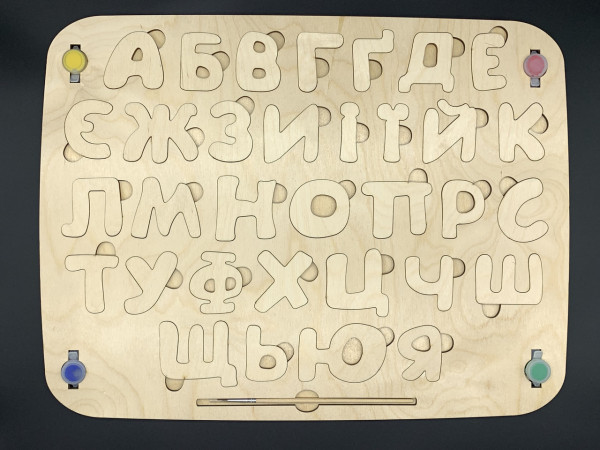 АБВГҐДЕ
ЄЖЗИІЇЙК
ЛМНОПРС
ТУФХЦЧШ
ЩЬЮЯ